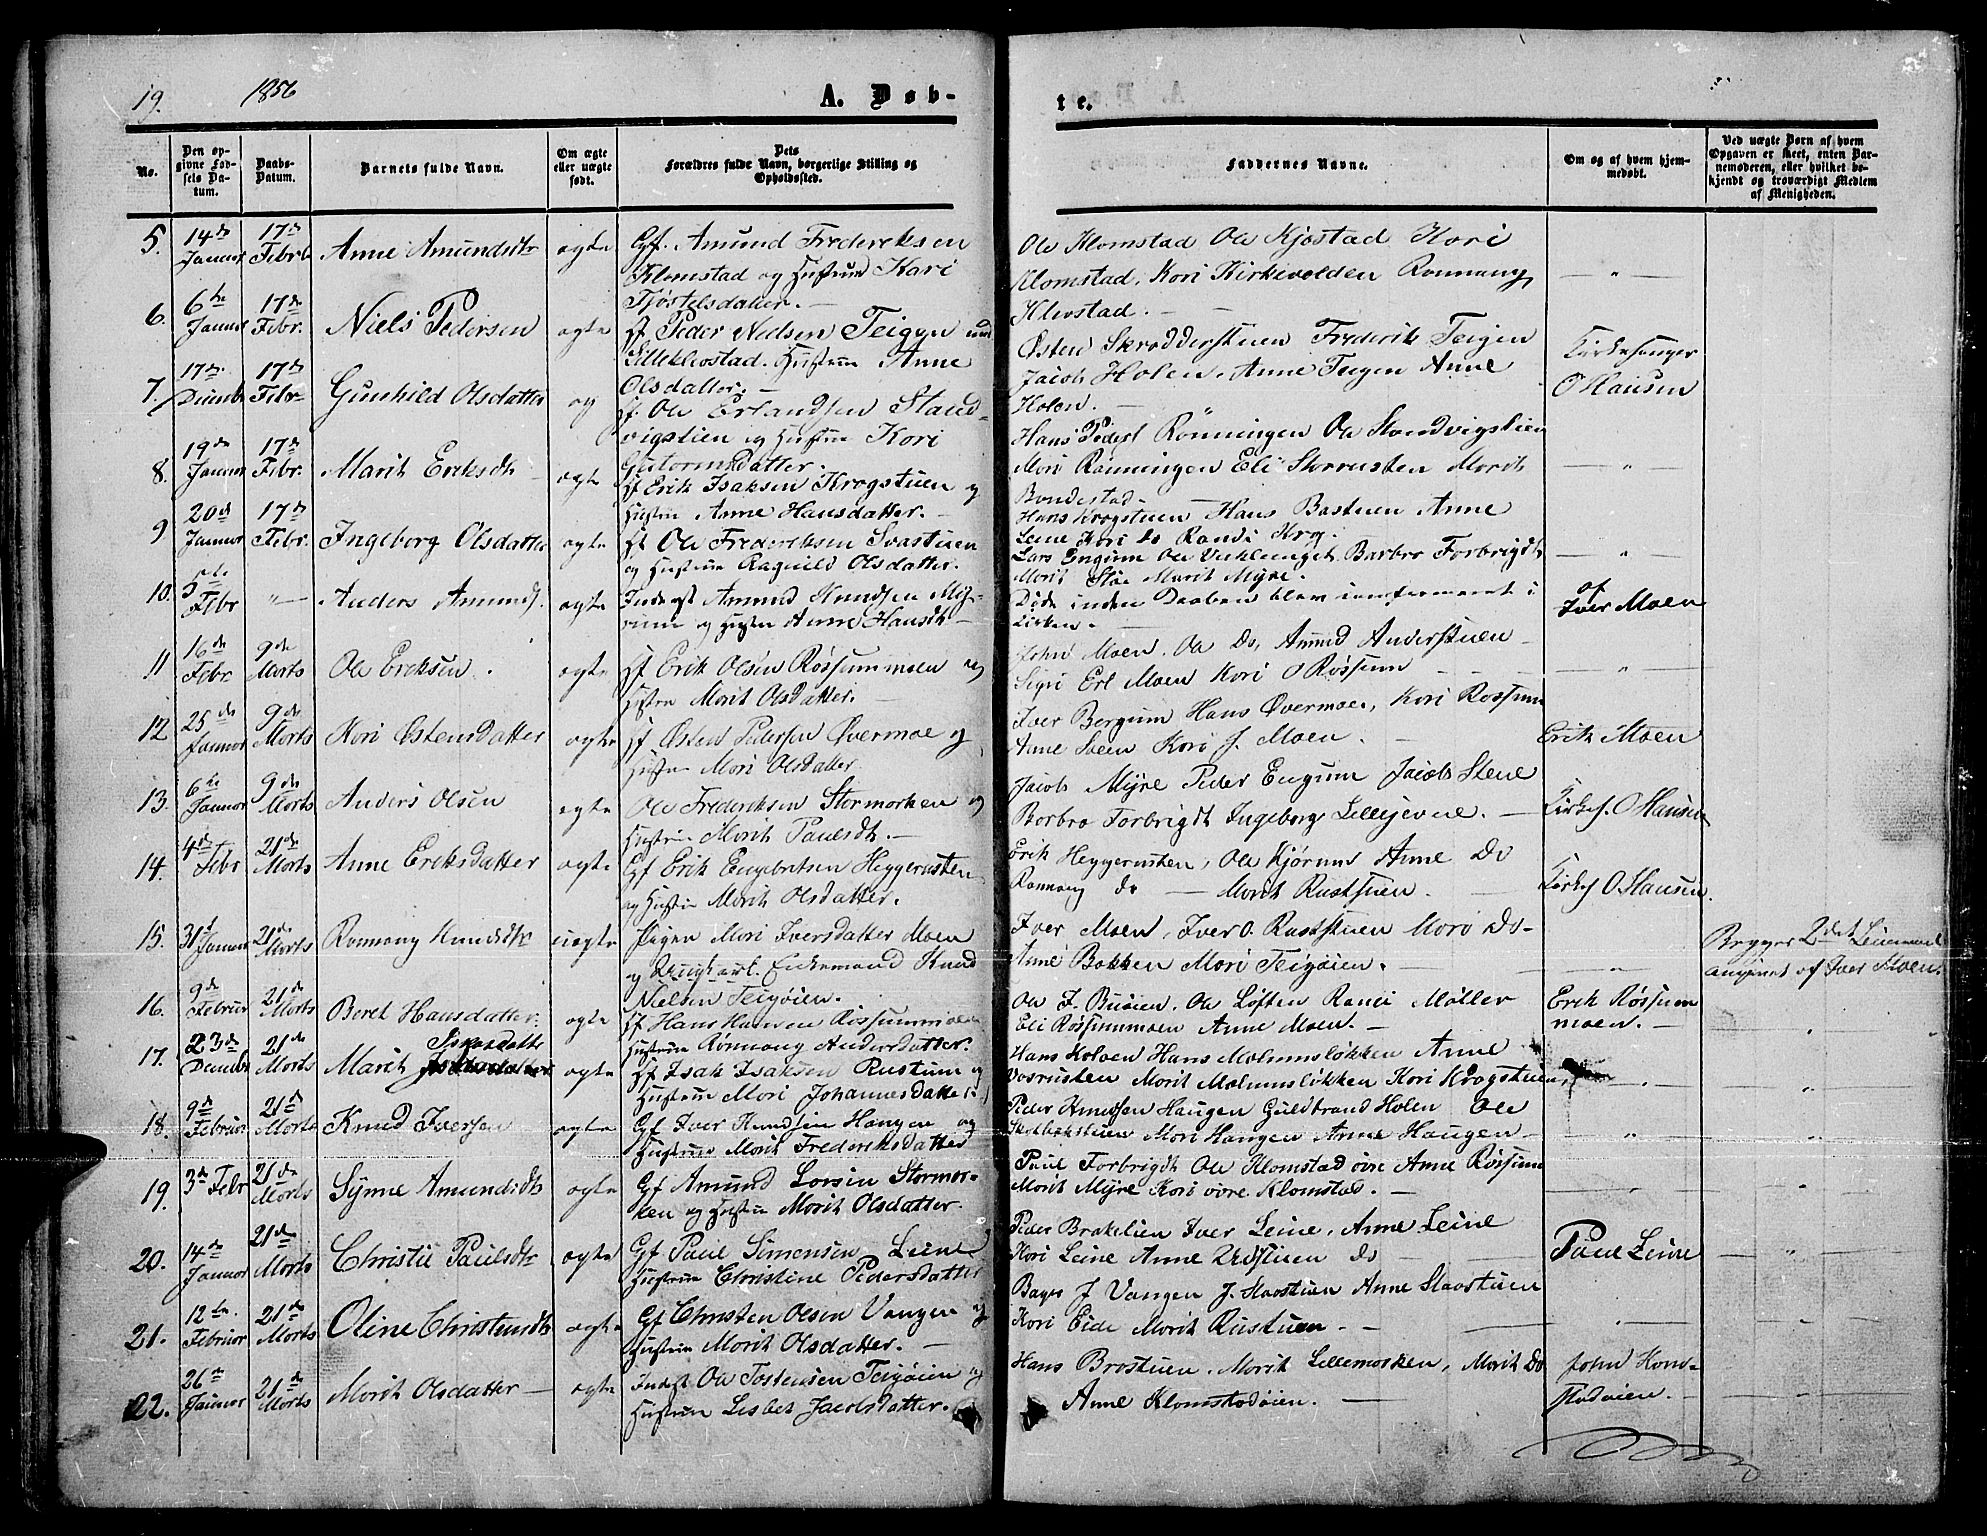 19. 1856 A. Døb-
te.
No.
Den op-
givne Fød-
sels Da-
tum.
Daabs-
Datum.
Barnets fulde Navn.
Om ægte
eller uægte
født.
Dets
Forældres fulde Navn, borgerlige Stilling og
Opholdssted.
Faddernes Navne.
Om og af hvem hjem-
medøbt.
Ved uægte Børn af hvem
Opgaven er skeet, enten Bar-
nemoderen, eller hvilket be-
kjendt og troværdigt Medlem
af Menigheden.
5. 14de Januar 17de Febr Anne Amundsdtr ægte Gf. Amund Frederiksen
Klomstad og Hustrue Kari
Tjøstelsdatter.
Ole Klomstad Ole Kjøstad Kari
Klomstad, Kari Kirkevolden Rønnaug
Klevstad. — "
6. 6te Januar 17de Febr. Niels Pedersen ægte Hf Peder Nielsen Teigen
Lilleklevstad. Hustrue Anne
Olsdatter.
Østen Skrædderstuen Frederik Teigen
Jacob Holen, Anne Teigen Anne
Holen.
Kirkesanger
O Hansen
7. 17de Decembr 17de Febr Gunhild Olsdatter æg Hf. Ole Erlandsen Stand-
vigstien og Hustrue Kari
Guttormsdatter.
Hans Peders Rønningen Ole Standvigstien
Mari Rønningen Eli Storrusten Marit
Bondestad. — "
8. 19de Januar 17de Febr. Marit Eriksdt ægte Hf Erik Isaksen Krogstuen og
Hustrue Anne Hansdatter.
Hans Krogstuen Hans Bastuen Anne
Leine Kari Do Randi Krog.
9 20de Januar 17de Febr. Ingeborg Olsdatter ægte Hf Ole Frederiksen Svastuen
og Hustrue Ragnild Olsdatter.
Lars Engum Ole Veklunget Barbro Forbrigdt
Marit Støe Marit Myre. — "
10. 5te Febr " Anders Amunds. ægte Inderst Amund Knudsen My-
og Hustru Anne Hansdt
Døde inden Daaben blev confirmeret i
Kirken.
af
Iver Moen
11 16de Febr. 9de Marts Ole Eriksen. ægte Hf Erik Olsen Røssummoen og
Hustru Marit Olsdatter.
John Moen. Ole Do, Amund Anderstuen
Sigri Erl Moen Kari O Røssum — "
12 25de Januar 9de Marts Kari Østensdatter ægte Hf Østen Pedersen Øvermoe og
Hustru Mari Olsdatter.
Iver Bergum Hans Øvermoe, Kari Rossum
Anne Sveen Kari J. Moen.
Erik Moen
13. 6te Januar 9de Marts Anders Olsen ægte Ole Frederiksen Stormorken og
Hustrue Marit Paulsdt.
Jacob Myre Peder Engum Jacob Stene
Borbro Forbrigdt Ingeborg Lillejevne.
Kirkes. O Hansen
14. 4de Febr 21de Marts Anne Eriksdatter ægte Gf Erik Engebretsen Heggerusten
og Hustru Marit Olsdatter.
Erik Heggerusten, Ole Kjørum Anne Do
Rønnaug do — Marit Rustsuen.
Kirkes O Hansen
15. 31d Januar 21de Marts Rønnaug Knudsdtr uægte Pigen Mari Iversdatter Moen
og Enkemand Knud
Nielsen Teigøien.
Iver Moen, Iver O. Rustsuen Mari Do
Anne Bakken Mari Teigøien. "
Begges 2det Leiermaal
angivet af Iver Moen.
16. 9de Februar 21de Marts Beret Hansdatter. ægte Hf Hans Hansen Røssummoen
Hustrue Rønnaug Andersdatter.
Ole I. Buøien, Ole Løften Rannei Møller
Eli Røssummoen Anne Moen.
Erik Røssum
moen. "
17. 23de Decembr 21de Marts Marit Isaksdatter ægte Hf Isak Isaksen Rustum og
Hustrue Mari Johannesdatter.
Hans Kolven Hans Malmsløkken Anne
Vosrusten Marit Malmsløkken Kari Krogstuen, " "
18. 9de Februar 21de Marts Knud Iversen ægte Gf Iver Knudsen Haugen og
Hustrue Marit Frederiksdatter
Peder Amundsen Haugen Guldbrand Holen Ole
Skolbakstuen Mari Haugen Anne Haugen " "
19. 3de Febr 21de Marts Synne Amundsdt ægte Gf Amund Larsen Stormor-
ken og Hustrue Marit Olsdatter.
Paul Forbrigdt Ole Klomstad øvre Anne Røssum
Marit Myre Kari øvre Klomstad. — " "
20. 14de Januar 21de Marts Christie Paulsdtr ægte Gf Paul Simensen Leine
Hustrue Christine Pedersdatter
Peder Brakelien Iver Leine, Anne Leine
Kari Leine Anne Do
Paul Leine "
21. 12te Februar 21de Marts Oline Christensdt ægte Gf Christen Olsen Vangen og
Hustrue Marit Olsdatter.
J Vangen J. Haastuen Anne Slaastuen
Kari Eide Marit Rustuen. " "
22. 26de Januar 21de Marts Marit Olsdatter ægte Inderst Ole Tostensen Teigøien og
Hustrue Lisbet Jacobsdatter.
Hans Brostuen, Marit Lillemorken, Marit Do
Anne Klomstadøien.
John Kom-
stadøien.